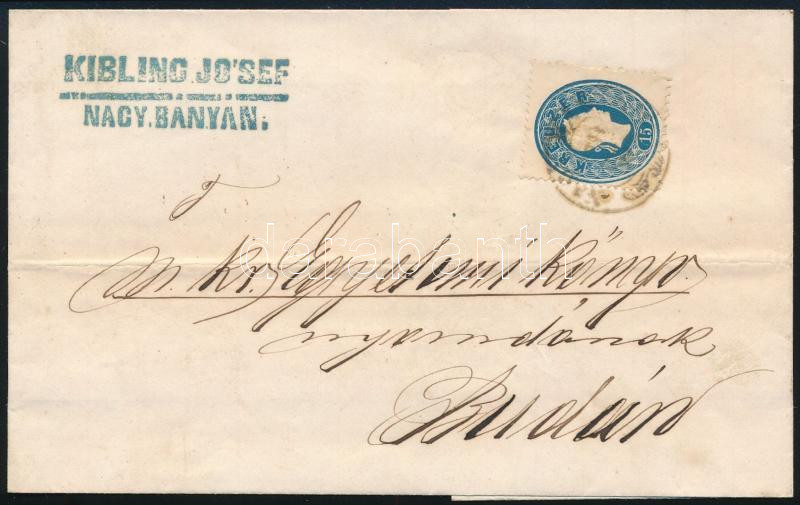 KIBLING JO'SEF
NAGY.BANYAN.
KREUZER
15
T.
m. kir. Egyetemi Könyv
nyomdának
Budán
darabanth